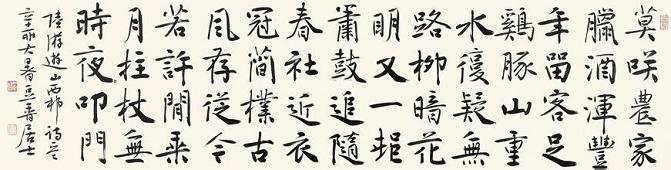 莫咲農家
臘酒渾豐
年留客足
鷄豚山重
水復疑無
路柳暗花
明又一邨
蕭鼓追隨
春社近衣
冠簡樸古
風存從今
若許閒乘
月柱杖無
時夜叩門
陸游遊山西邨詩
大暑居士